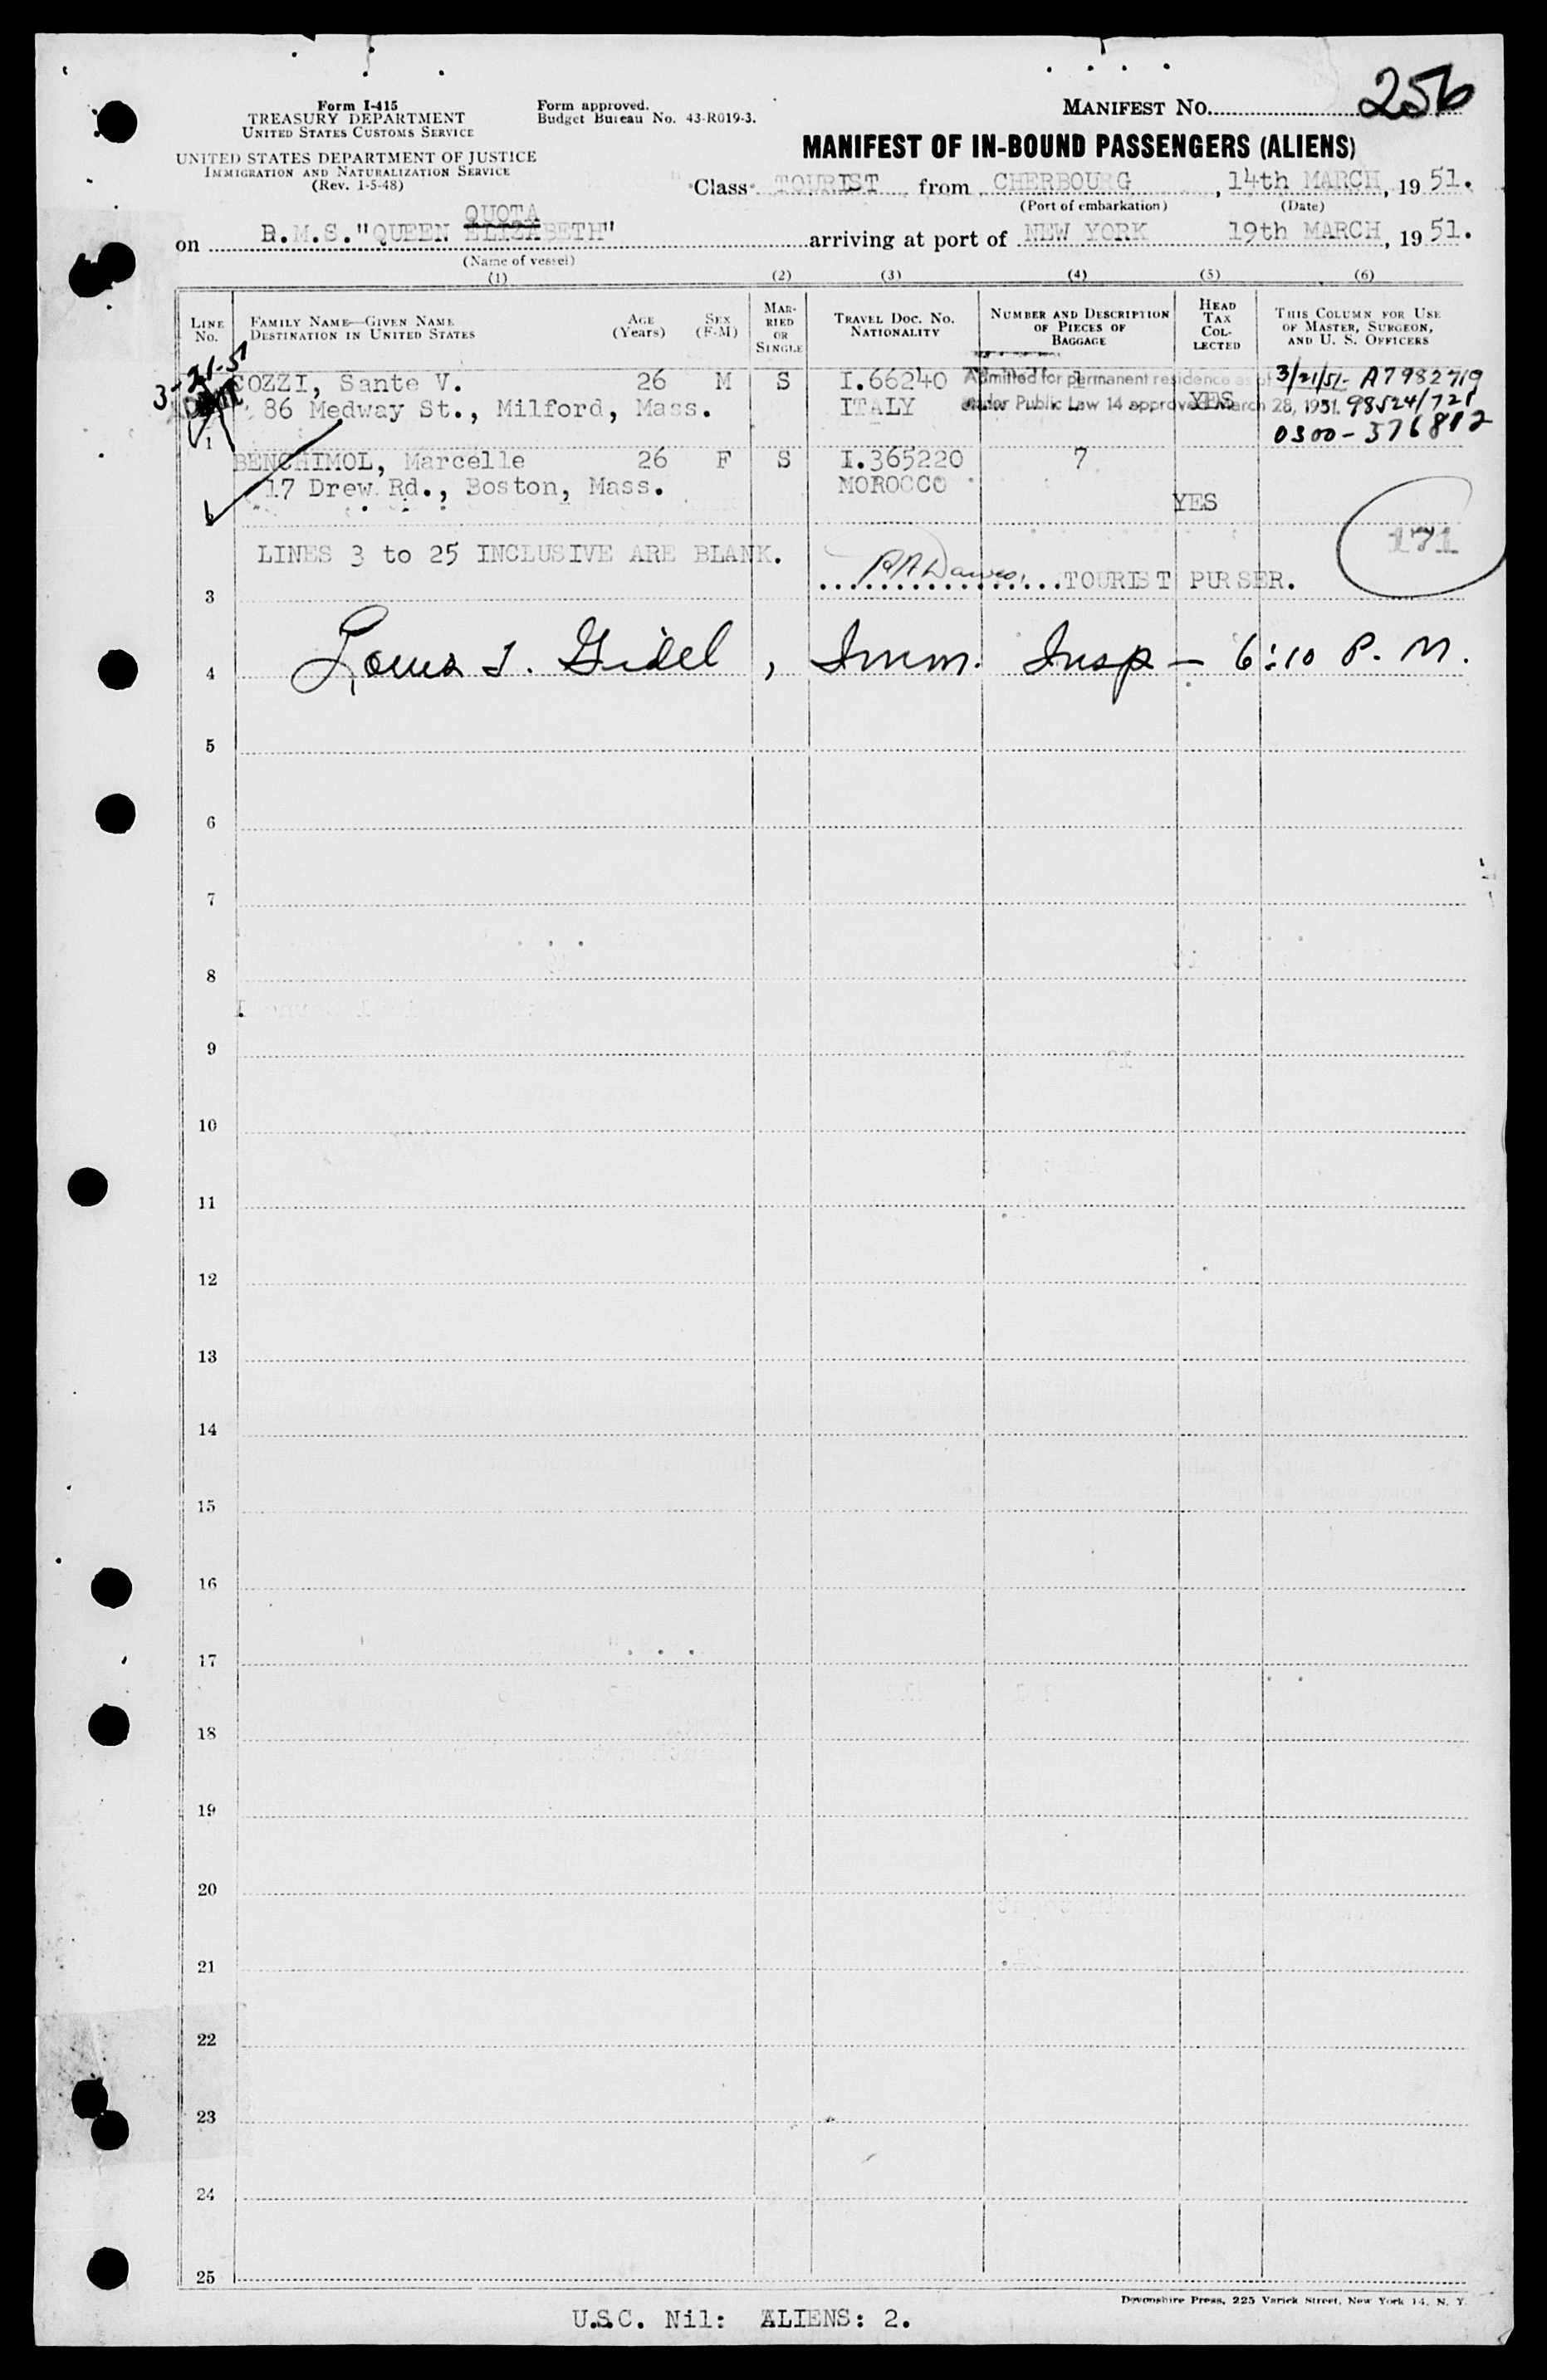 Form I-415
TREASURY DEPARTMENT
UNITED STATES CUSTOMS SERVICE
UNITED STATES DEPARTMENT OF JUSTICE
IMMIGRATION AND NATURALIZATION SERVICE
(Rev. 1-5-48)
Form approved.
Budget Bureau No. 43-R019-3.
MANIFEST NO. 256
MANIFEST OF IN-BOUND PASSENGERS (ALIENS)
Class TOURIST from CHERBOURG, 14th MARCH, 19 51.
(Port of embarkation) (Date)
QUOTA
on R.M.S. "QUEEN ELIZABETH" arriving at port of NEW YORK 19th MARCH, 19 51.
(Name of vessel)
(1) (2) (3) (4) (5) (6)
LINE NO.
FAMILY NAME—GIVEN NAME
DESTINATION IN UNITED STATES
AGE (Years)
SEX (F-M)
MARRIED OR SINGLE
TRAVEL DOC. NO.
NATIONALITY
NUMBER AND DESCRIPTION OF PIECES OF BAGGAGE
HEAD TAX COLLECTED
THIS COLUMN FOR USE OF MASTER, SURGEON, AND U. S. OFFICERS
3-21-51
COZZI, Sante V. 26 M S I.66240 1 Admitted for permanent residence as of 3/21/51- A7982719
86 Medway St., Milford, Mass. ITALY under Public Law 14 approved March 28, 1951. YES 98524/721
1 0300-376812
BENCHIMOL, Marcelle 26 F S I.365220 7
17 Drew Rd., Boston, Mass. MOROCCO YES
171
LINES 3 to 25 INCLUSIVE ARE BLANK.
TOURIST PURSER.
3
4 Louis I. Gidel, Imm. Insp - 6:10 P.M.
5
6
7
8
9
10
11
12
13
14
15
16
17
18
19
20
21
22
23
24
25
Devonshire Press, 225 Varick Street, New York 14, N. Y.
U.S.C. Nil: ALIENS: 2.